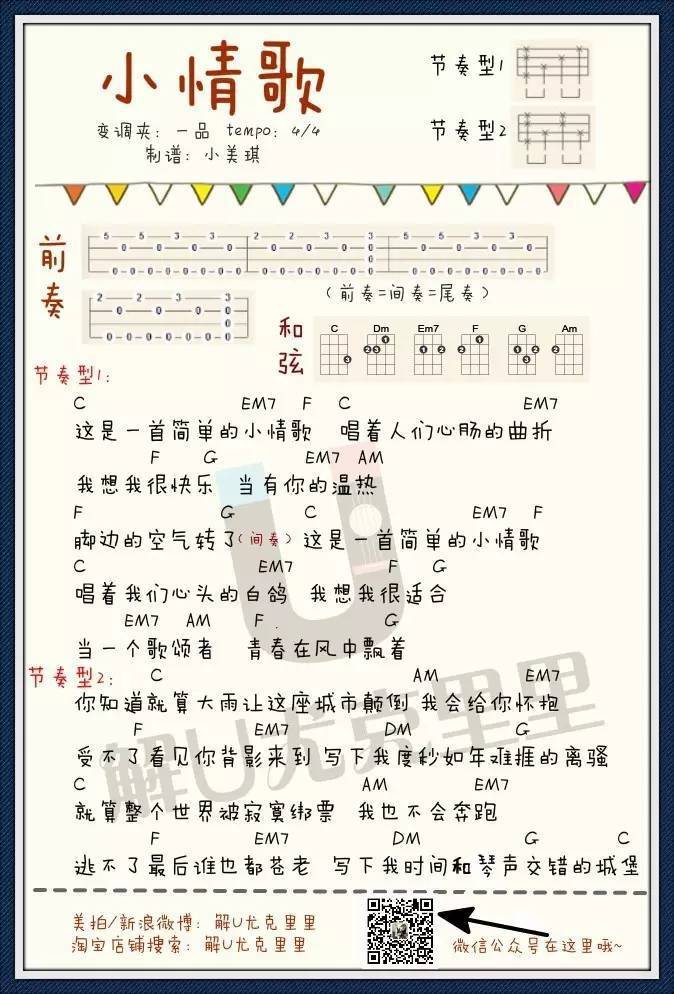 小情歌
节奏型1
变调夹：一品 tempo：4/4
节奏型2
制谱：小美琪
前奏
5 5 3 3 2 2 3 3 5 5 3 3
0 0 0 0 0 0 0 0 0 0
0
0 0 0 0 0 0 0 0 0 0 0 0
2 2 3 3
0 0 0
0
0 0 0 0
（前奏=间奏=尾奏）
和弦
C Dm Em7 F G Am
节奏型1：
C EM7 F C EM7
这是一首简单的小情歌 唱着人们心肠的曲折
F G EM7 AM
我想我很快乐 当有你的温热
F G C EM7 F
脚边的空气转了(间奏) 这是一首简单的小情歌
C EM7 F G
唱着我们心头的白鸽 我想我很适合
EM7 AM F G
当一个歌颂者 青春在风中飘着
节奏型2：
C AM EM7
你知道就算大雨让这座城市颠倒 我会给你怀抱
F EM7 DM G
受不了看见你背影来到 写下我度秒如年难捱的离骚
C AM EM7
就算整个世界被寂寞绑票 我也不会奔跑
F EM7 DM G C
逃不了最后谁也都苍老 写下我时间和琴声交错的城堡
解U尤克里里
美拍/新浪微博：解U尤克里里
淘宝店铺搜索：解U尤克里里
微信公众号在这里哦~